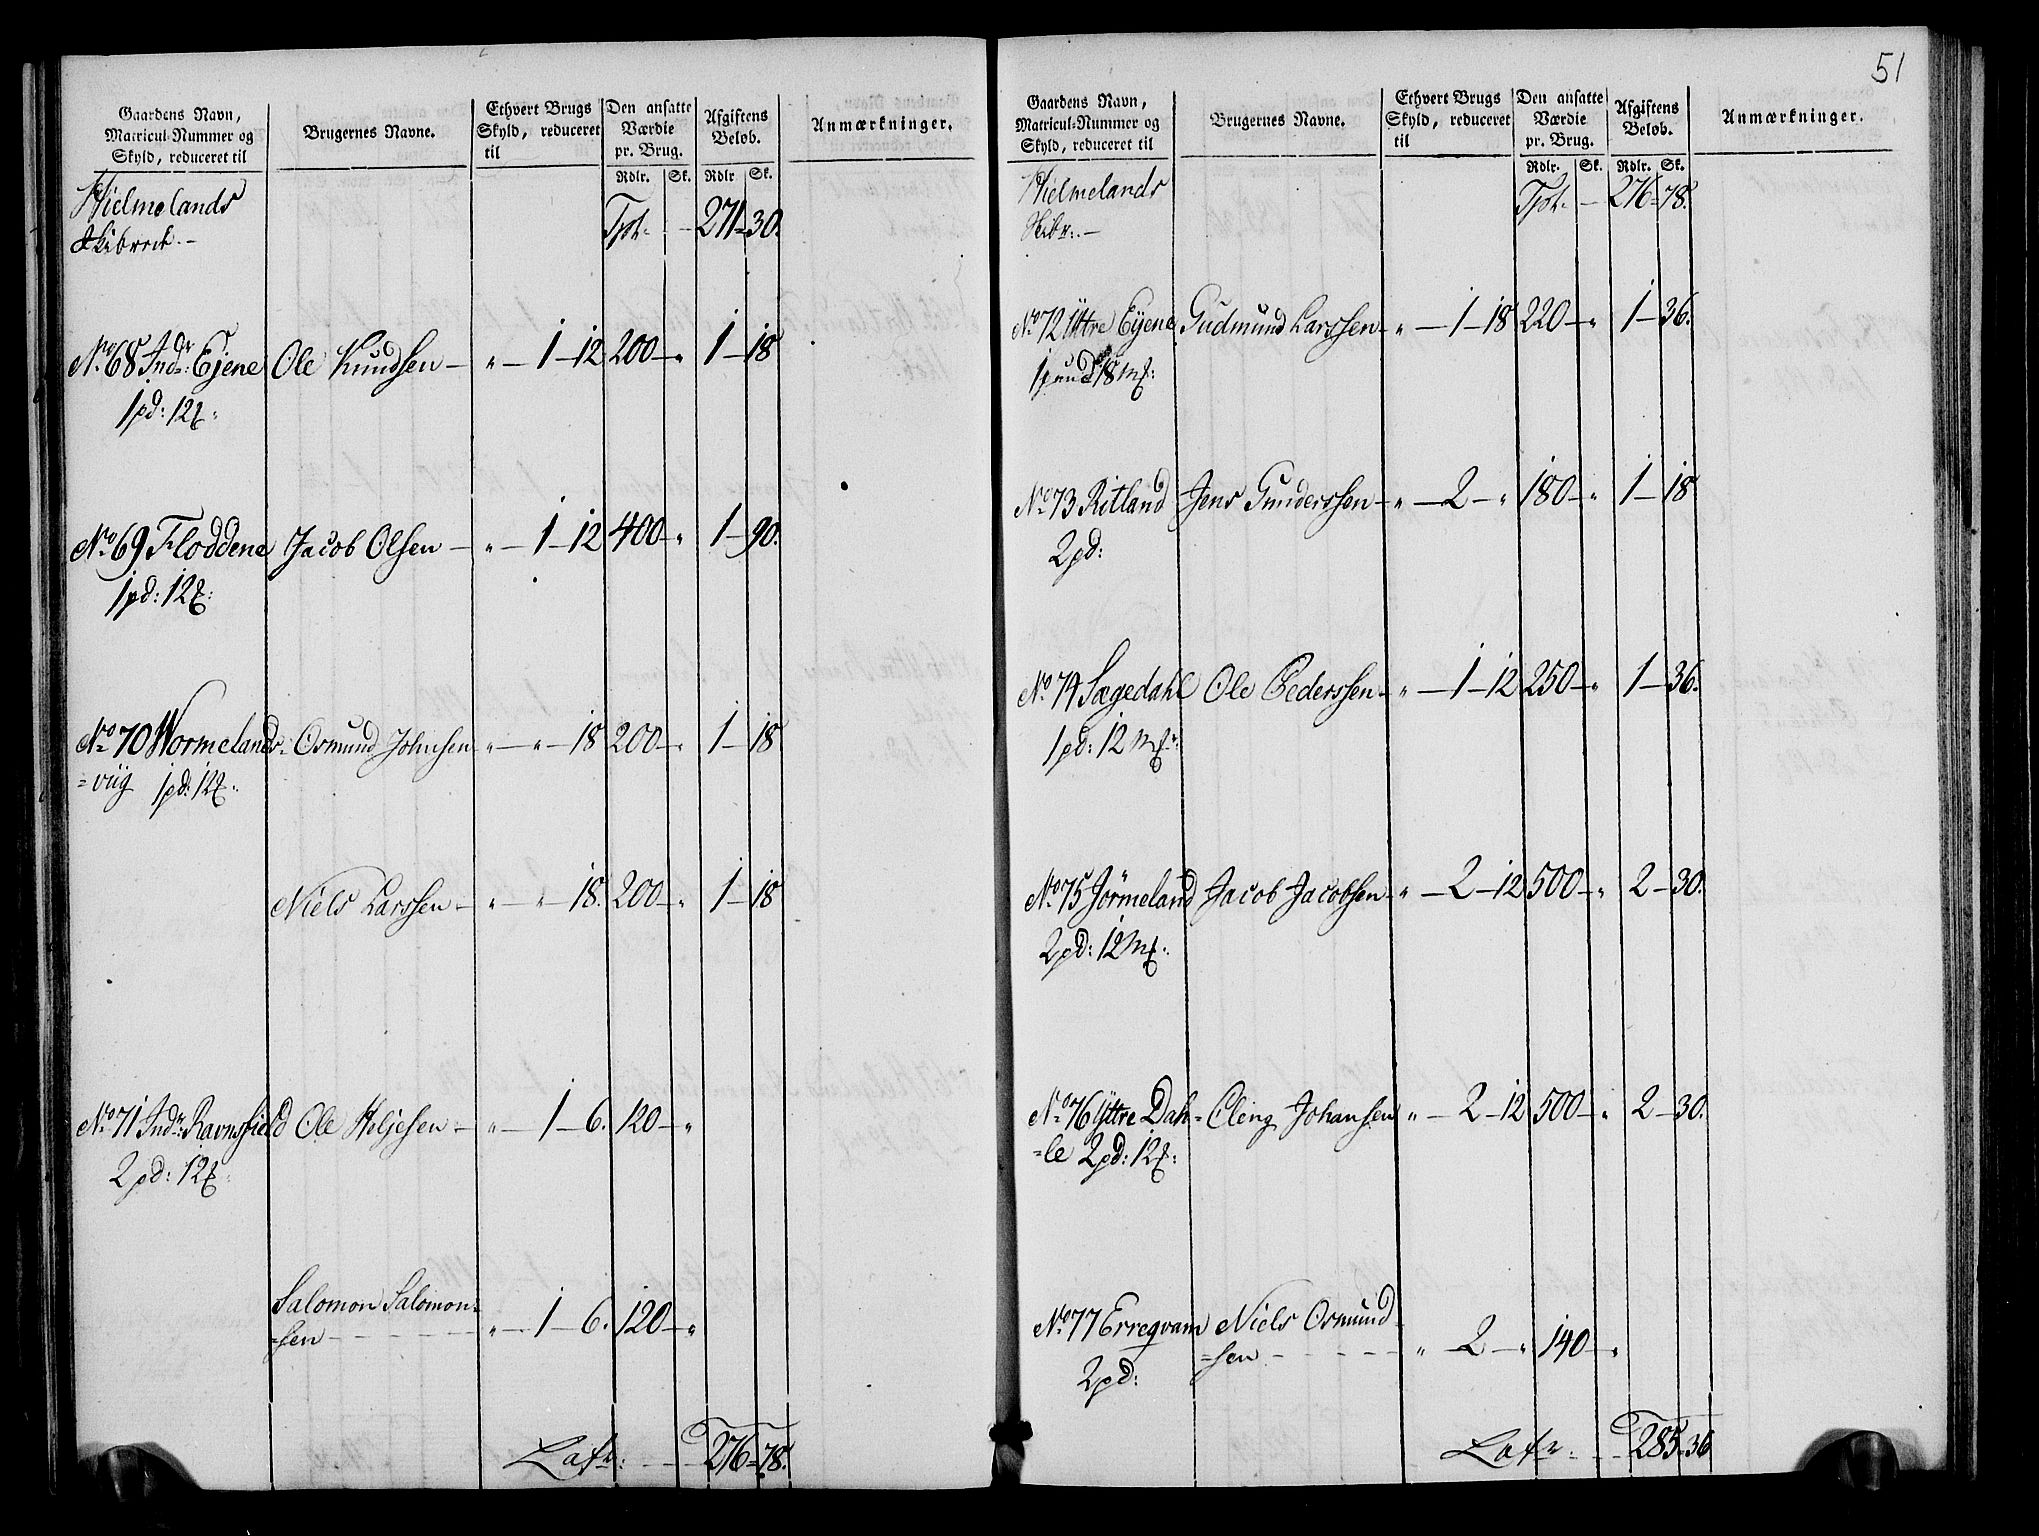 Gaardens Navn, Matricul-Nummer og Skyld, reduceret til | Brugernes Navne. | Ethvert Brugs Skyld, reduceret til | Den ansatte Værdie pr. Brug. | Afgiftens Beløb. | Anmærkninger.
Rdlr. Sk. Rdlr Sk.
Hielmelands Tpt. - - 271 - 30.
Skibreck. -
No 68 Indr: Ejene Ole Knudsen - „ - 1 - 12 200 - „ 1 - 18
1 pd: 12 ℔:
No 69 Floddene Jacob Olsen - „ - 1 - 12 400 - „ 1 - 90.
1 pd: 12 ℔:
No 70 Wormelands- Osmund Johnsen „ - „ - 18 200 - „ 1 - 18
=viig 1 pd: 12 ℔:
Niels Larssen - „ - „ - 18. 200 - „ 1 - 18
No 71 Indr: Ravnsfield Ole Heljesen - „ - 1 - 6. 120 - „
2 pd: 12 ℔:
Salomon Salomon=
=sen - - - - „ - 1 - 6. 120 - „
Latr: - - - 276 - 78.
51
Gaardens Navn, Matricul-Nummer og Skyld, reduceret til | Brugernes Navne. | Ethvert Brugs Skyld, reduceret til | Den ansatte Værdie pr. Brug. | Afgiftens Beløb. | Anmærkninger.
Rdlr. Sk. Rdlr. Sk.
Hielmelands Tpt. - 276 - 78.
Skibr: -
No 72 Yttre Eyene Gudmund Larssen - „ - 1 - 18 220 - „ 1 - 36.
1 pund 18 mk:
No 73 Ritland Jens Gunderssen - „ - 2 - „ 180 - „ 1 - 18
2 pd:
No 74 Sægedahl Ole Pederssen - „ - 1 - 12 250 - „ 1 - 36.
1 pd: 12 mk:
No 75 Jörmeland Jacob Jacobsen - „ - 2 - 12 500 - „ 2 - 30.
2 pd: 12 mk:
No 76 Yttre Dah= Eleng Johansen „ - 2 - 12 500 - „ 2 - 30.
=le 2 pd: 12 ℔:
No 77 Erreqvam Niels Osmund
=sen - - - - „ - 2 - „ 140 - „
2 pd:
Latr: - - 285 - 36